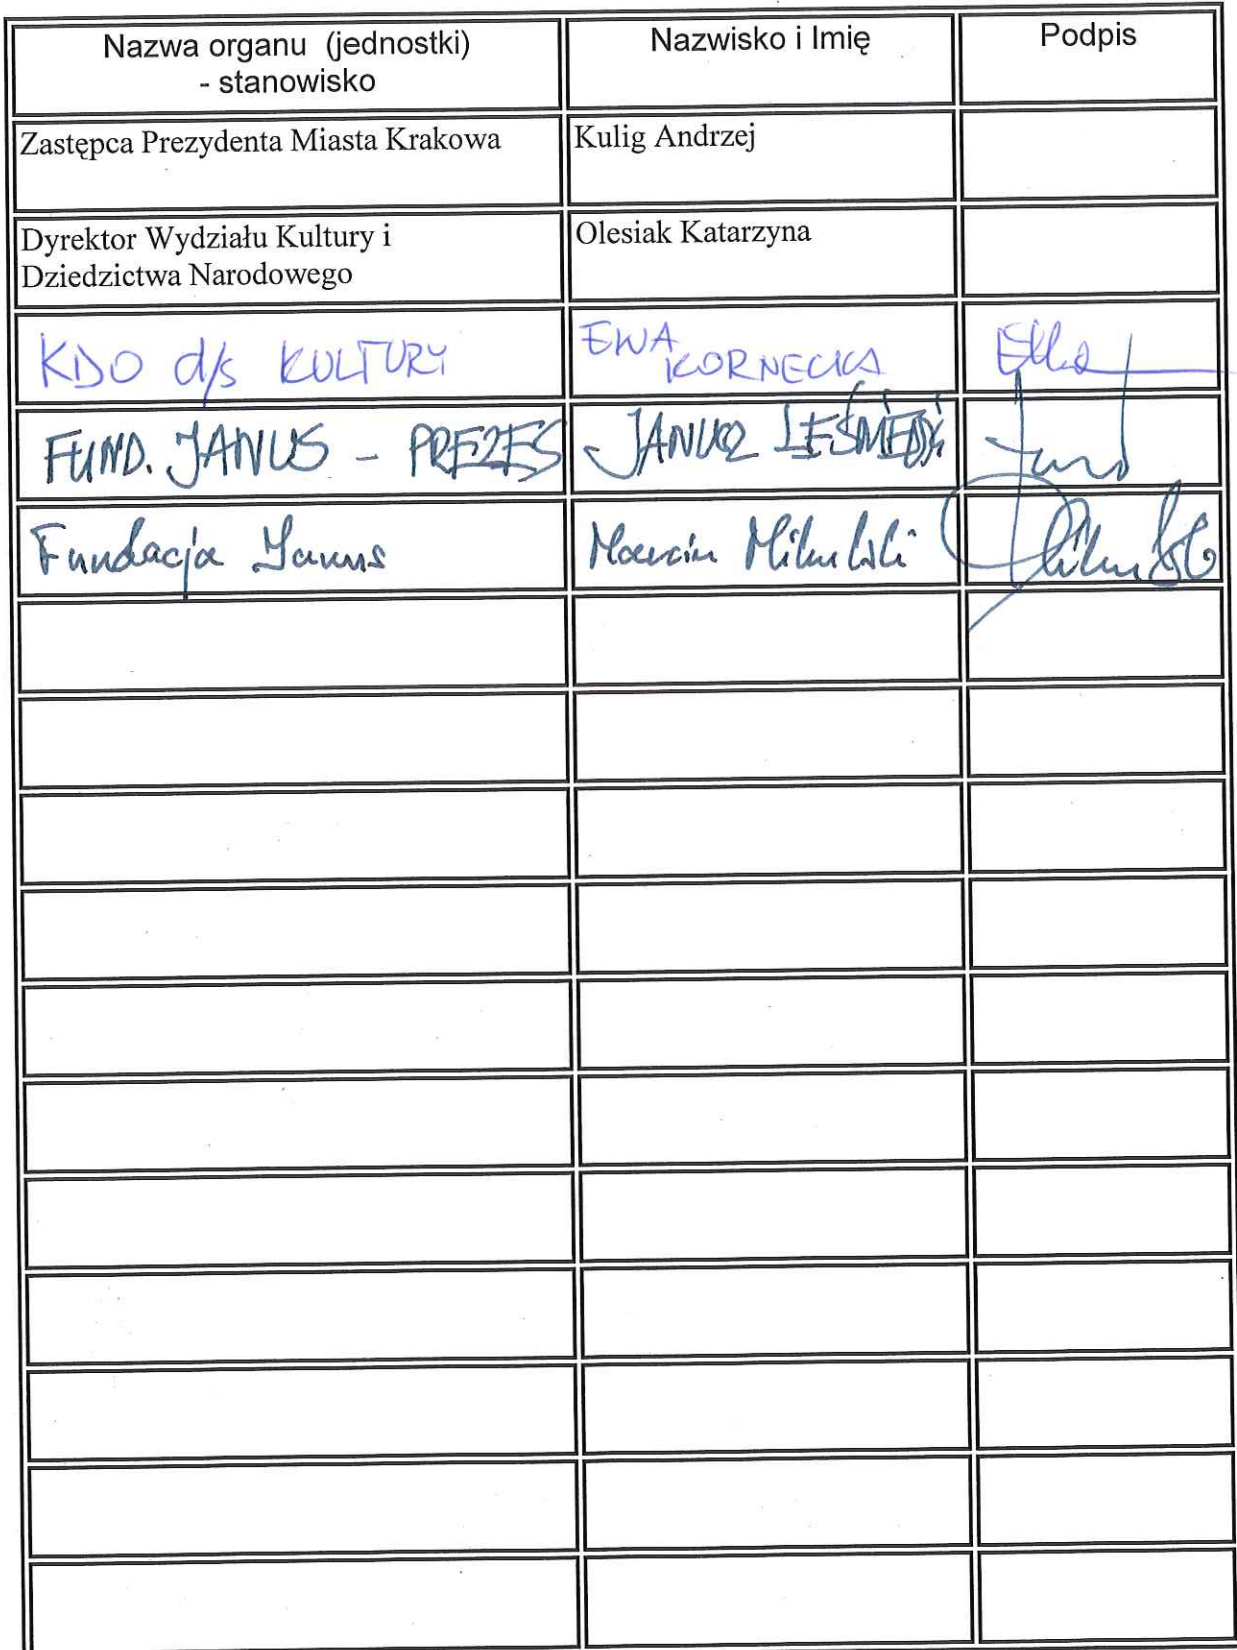 Nazwa organu (jednostki)
- stanowisko
Nazwisko i Imię
Podpis
Zastępca Prezydenta Miasta Krakowa
Kulig Andrzej
Dyrektor Wydziału Kultury i
Dziedzictwa Narodowego
Olesiak Katarzyna
KDO d/s KULTURY
EWA
KORNECKA
FUND. JANUS - PREZES
Fundacja Janus
Marcin Mikulski